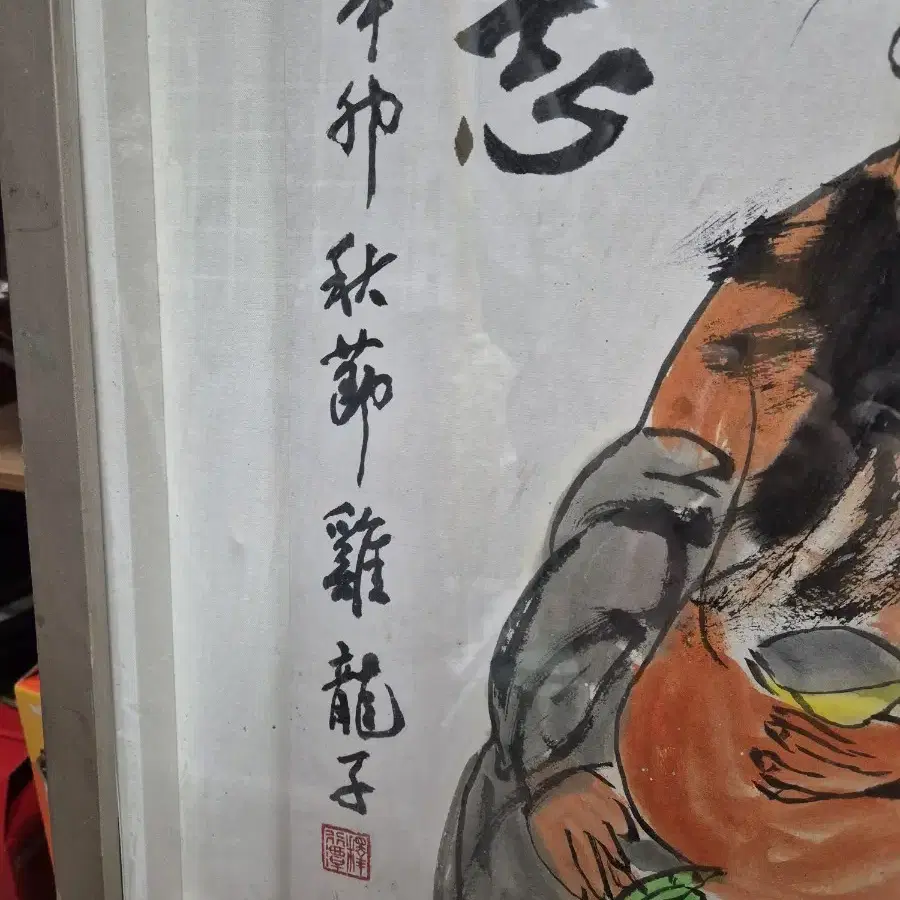 辛卯秋節雞龍子